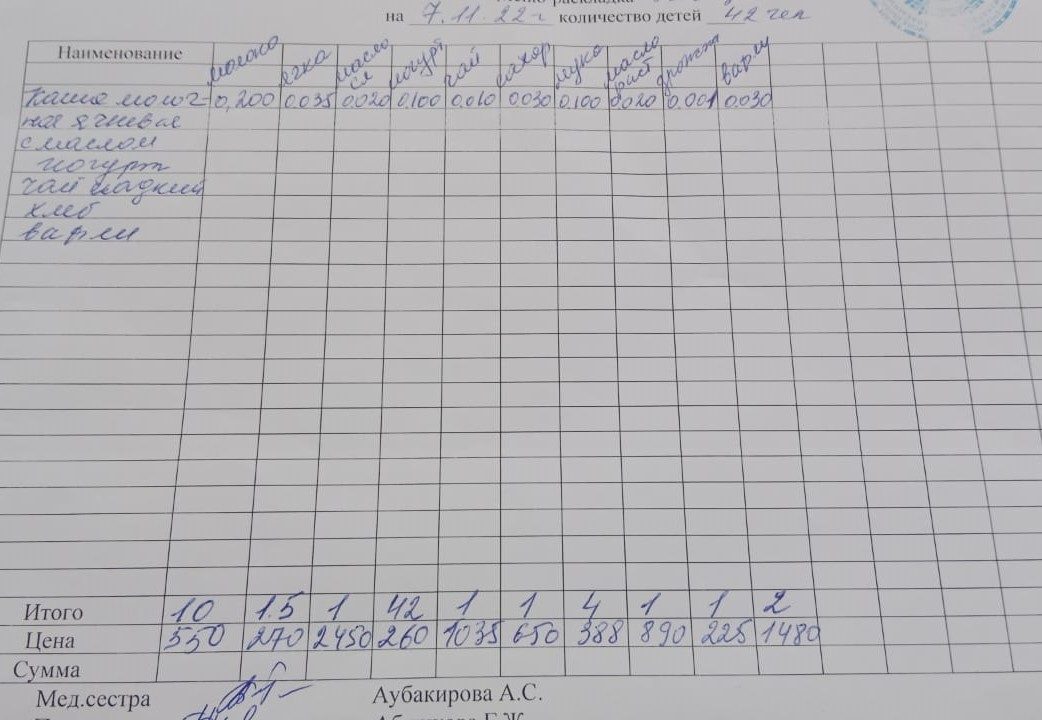 на 7.11.22г количество детей 42 чел
Наименование молоко ячка масло сл йогурт чай сахар мука масло раст дрожжи варли
Каша молоч- 0,200 0.035 0.020 0,100 0,010 0.030 0,100 0.020 0.001 0.030
ная ячневая
с маслом
йогурт
чай сладкий
хлеб
варли
Итого 10 1.5 1 42 1 1 4 1 1 2
Цена 550 270 2450 260 1035 650 388 890 225 1480
Сумма
Мед.сестра Аубакирова А.С.